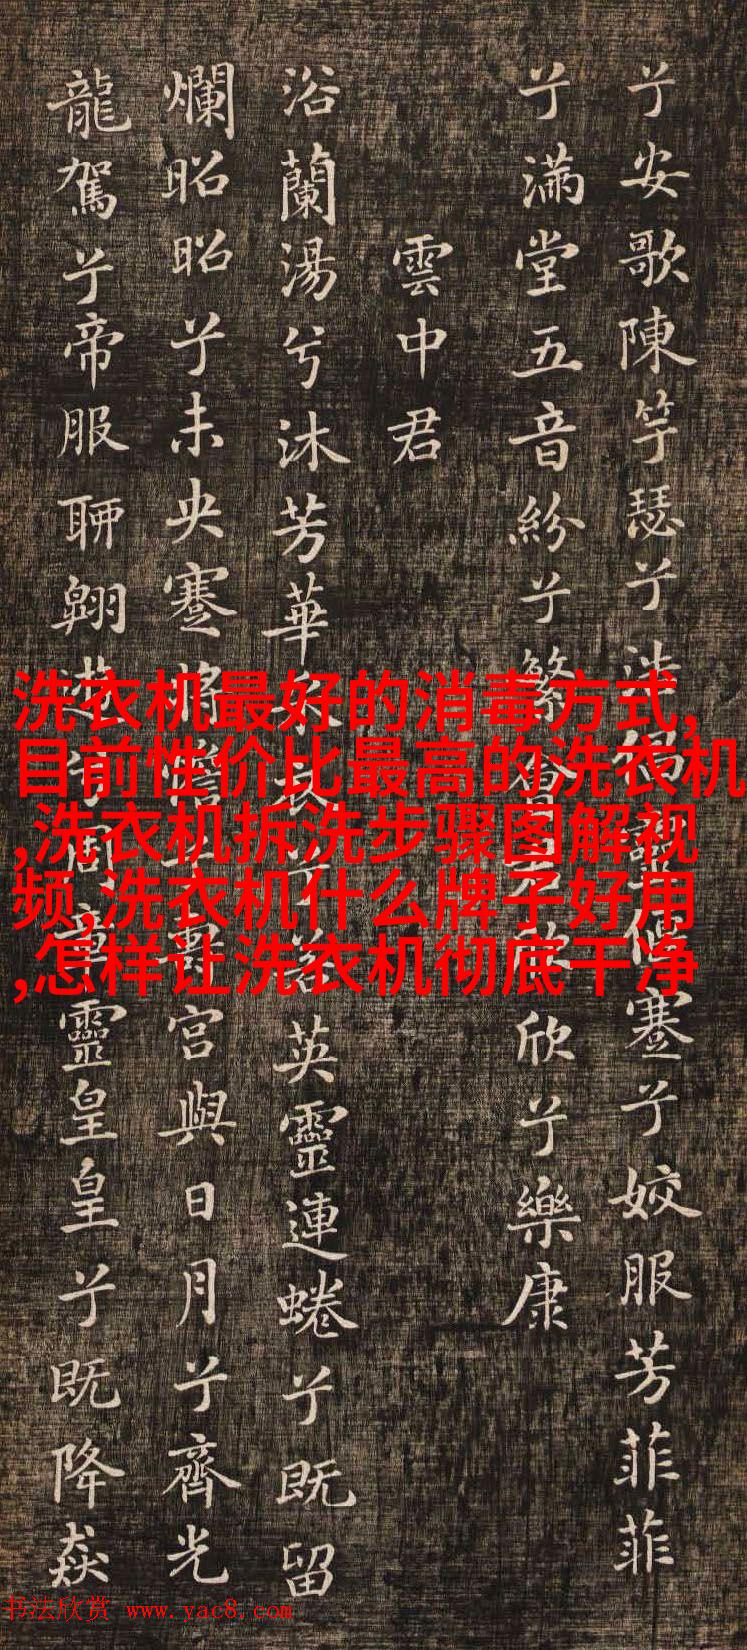 兮安歌陳竽瑟兮浩倡靈偃蹇兮姣服芳菲菲
兮滿堂五音紛兮繁會君欣欣兮樂康
雲中君
浴蘭湯兮沐芳華采衣兮若英靈連蜷兮既留
爛昭昭兮未央蹇將憺兮壽宮與日月兮齊光
龍駕兮帝服聊翱遊兮周章靈皇皇兮既降猋
洗衣机最好的消毒方式,
目前性价比最高的洗衣机
,洗衣机拆洗步骤图解视
频,洗衣机什么牌子好用
,怎样让洗衣机彻底干净
书法欣赏 www.yac8.com